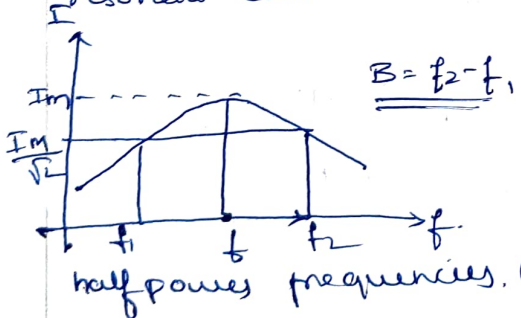 I
B = f2-f1
Im
Im/√2
f1 f f2 f.
half power frequencies.